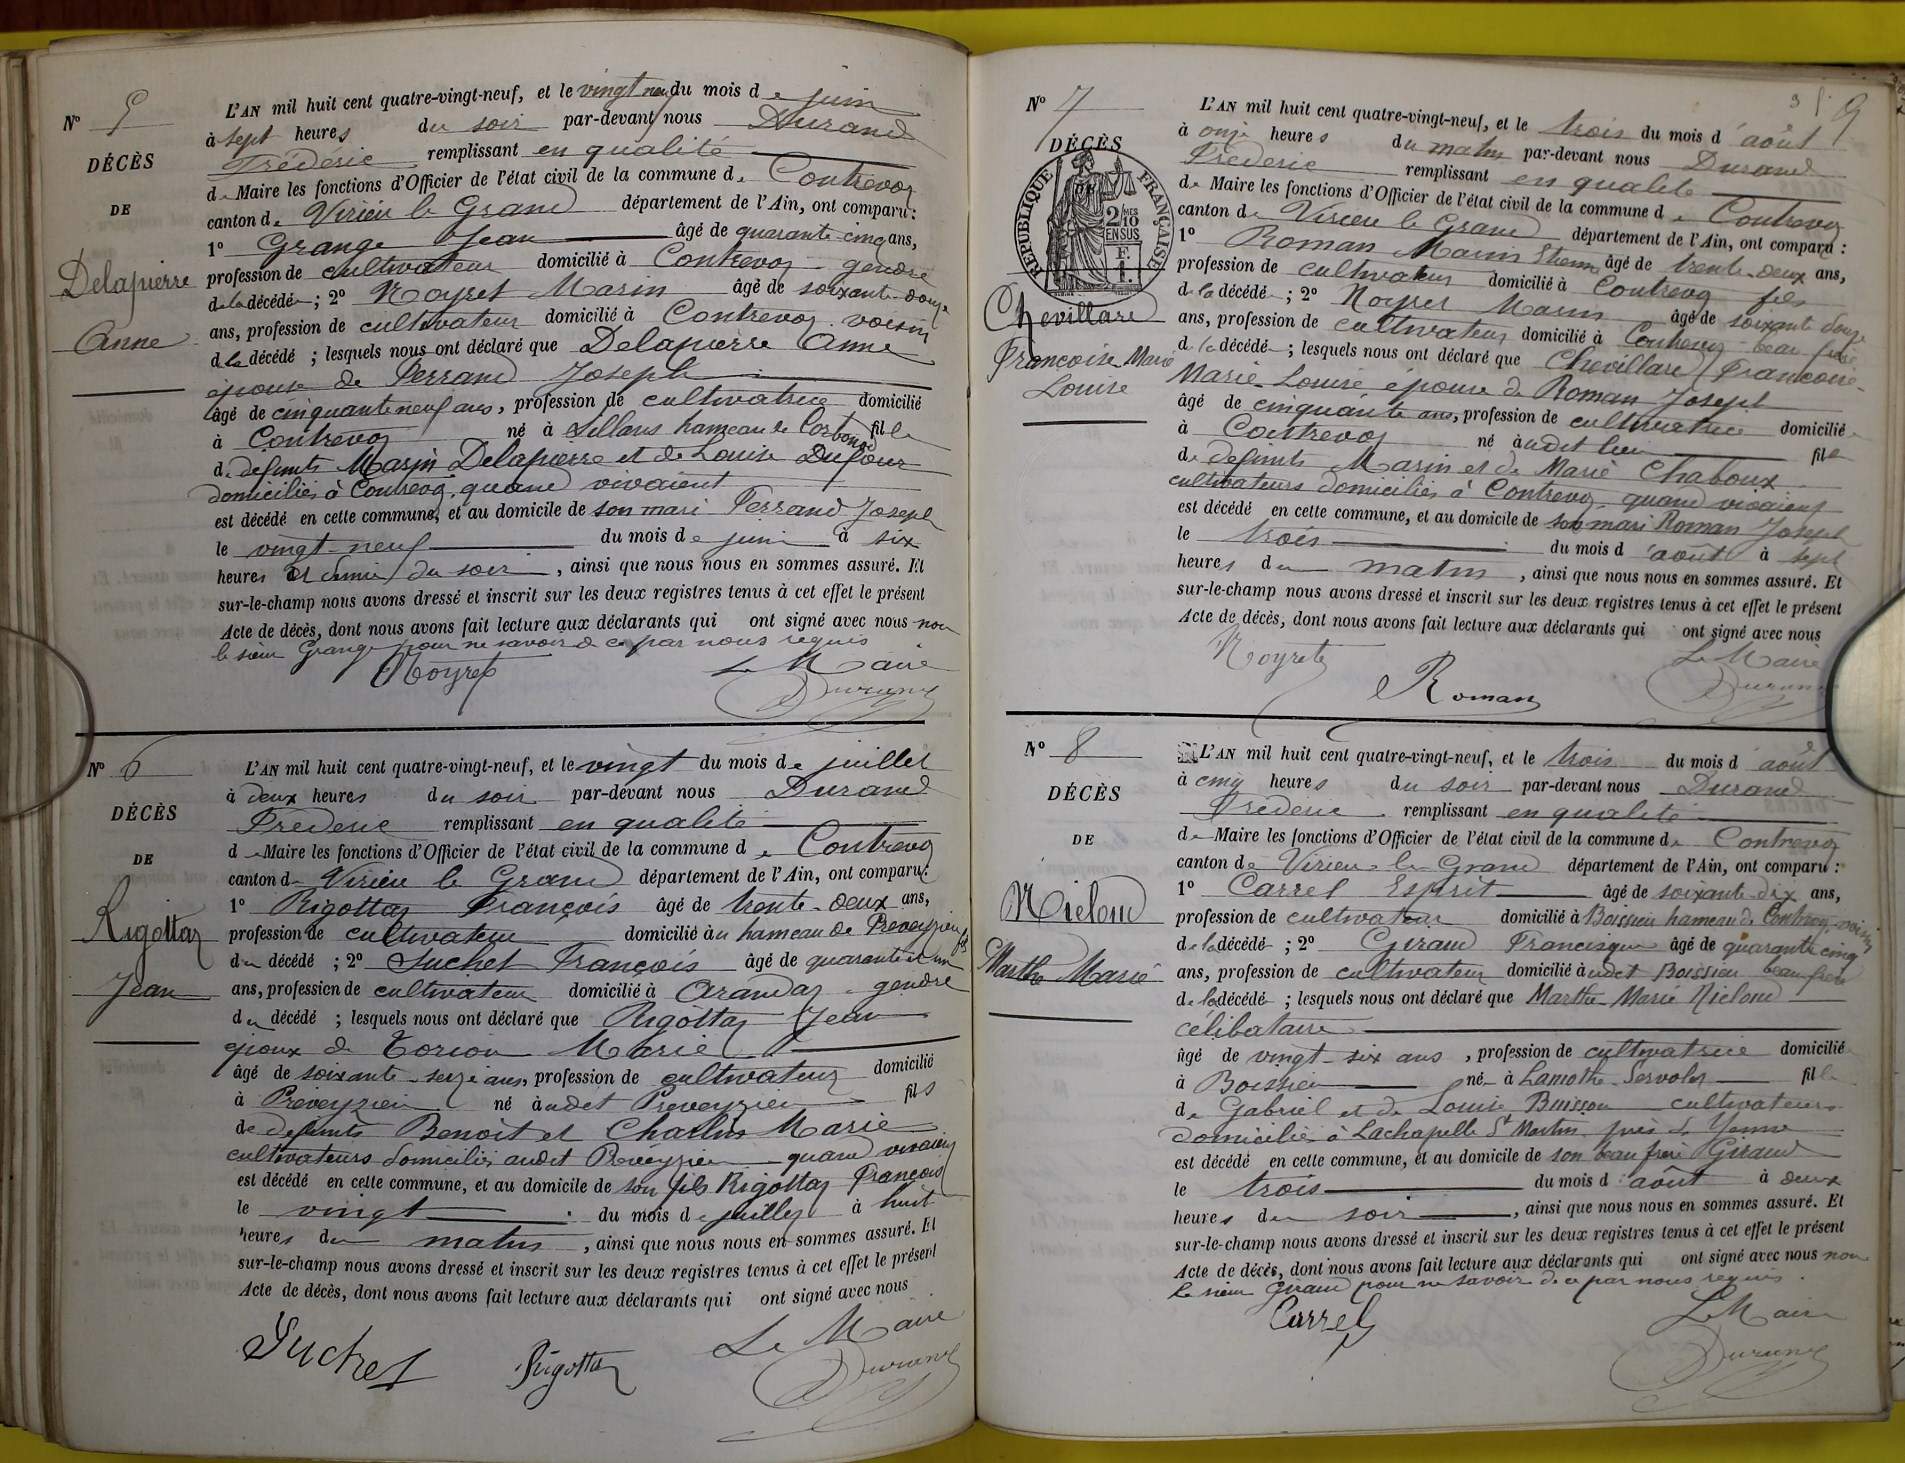 Nº 5
DÉCÈS
DE
Delapierre
Anne
L'AN mil huit cent quatre-vingt-neuf, et le vingt neuf du mois de juin
à sept heures du soir par-devant nous Durand
Fréderic remplissant en qualité
de Maire les fonctions d'Officier de l'état civil de la commune de Contrevoz
canton de Virieu le Grand département de l'Ain, ont comparu :
1º Grange Jean âgé de quarante-cinq ans,
profession de cultivateur domicilié à Contrevoz gendre
de la décédée ; 2º Noyret Marin âgé de soixante-douze
ans, profession de cultivateur domicilié à Contrevoz voisin
de la décédé ; lesquels nous ont déclaré que Delapierre Anne
épouse de Ferrand Joseph
âgé de cinquante neuf ans, profession de cultivatrice domicilié
à Contrevoz né à Sillans hameau de Corbonod fille
de defunts Marin Delapierre et de Louise Dufour
domiciliés à Contrevoz quand vivaient
est décédé en cette commune, et au domicile de son mari Ferrand Joseph
le vingt-neuf du mois de juin à six
heures et demie du soir, ainsi que nous nous en sommes assuré. Et
sur-le-champ nous avons dressé et inscrit sur les deux registres tenus à cet effet le présent
Acte de décès, dont nous avons fait lecture aux déclarants qui ont signé avec nous non
le sieur Grange pour ne savoir de ce par nous requis
Noyret Le Maire
Durand
Nº 6
DÉCÈS
DE
Rigottaz
Jean
L'AN mil huit cent quatre-vingt-neuf, et le vingt du mois de juillet
à deux heures du soir par-devant nous Durand
Fréderic remplissant en qualité
de Maire les fonctions d'Officier de l'état civil de la commune de Contrevoz
canton de Virieu le Grand département de l'Ain, ont comparu :
1º Rigottaz François âgé de trente-deux ans,
profession de cultivateur domicilié au hameau de Preveyzieu fils
du décédé ; 2º Suchet François âgé de quarante et un
ans, profession de cultivateur domicilié à Arandas gendre
du décédé ; lesquels nous ont déclaré que Rigottaz Jean
époux de Torion Marie
âgé de soixante-seize ans, profession de cultivateur domicilié
à Preveyzieu né à udit Preveyzieu fils
de defunts Benoit et Charlin Marie
cultivateurs domiciliés audit Preveyzieu quand vivaient
est décédé en cette commune, et au domicile de son fils Rigottaz François
le vingt du mois de juillet à huit
heures du matin, ainsi que nous nous en sommes assuré. Et
sur-le-champ nous avons dressé et inscrit sur les deux registres tenus à cet effet le présent
Acte de décès, dont nous avons fait lecture aux déclarants qui ont signé avec nous
Suchet Rigottaz Le Maire
Durand
Nº 7
DÉCÈS
DE
RÉPUBLIQUE FRANÇAISE
2/10 MES
EN SUS
F.
1.
Chevillard
Françoise Marie
Louise
9
L'AN mil huit cent quatre-vingt-neuf, et le trois du mois d'août
à onze heures du matin par-devant nous Durand
Fréderic remplissant en qualité
de Maire les fonctions d'Officier de l'état civil de la commune de Contrevoz
canton de Virieu le Grand département de l'Ain, ont comparu :
1º Roman Marin Etienne âgé de trente-deux ans,
profession de cultivateur domicilié à Contrevoz fils
de la décédée ; 2º Noyret Marin âgé de soixante douze
ans, profession de cultivateur domicilié à Contrevoz beau frère
de la décédée ; lesquels nous ont déclaré que Chevillard Françoise
Marie-Louise épouse de Roman Joseph
âgé de cinquante ans, profession de cultivatrice domiciliée
à Contrevoz né audit lieu fille
de defunts Marin et de Marie Chaboux
cultivateurs domiciliés à Contrevoz quand vivaient
est décédé en cette commune, et au domicile de son mari Roman Joseph
le trois du mois d'août à sept
heures du matin, ainsi que nous nous en sommes assuré. Et
sur-le-champ nous avons dressé et inscrit sur les deux registres tenus à cet effet le présent
Acte de décès, dont nous avons fait lecture aux déclarants qui ont signé avec nous
Noyret Roman Le Maire
Durand
Nº 8
DÉCÈS
DE
Nielond
Marthe Marie
L'AN mil huit cent quatre-vingt-neuf, et le trois du mois d'août
à cinq heures du soir par-devant nous Durand
Fréderic remplissant en qualité
de Maire les fonctions d'Officier de l'état civil de la commune de Contrevoz
canton de Virieu-le-Grand département de l'Ain, ont comparu :
1º Carrel Esprit âgé de soixante-dix ans,
profession de cultivateur domicilié à Boissieu hameau de Contrevoz voisin
de la décédée ; 2º Giraud Francisque âgé de quarante cinq
ans, profession de cultivateur domicilié audit Boissieu beau frère
de la décédée ; lesquels nous ont déclaré que Marthe Marie Nielond
célibataire
âgé de vingt-six ans, profession de cultivatrice domicilié
à Boissieu née à Lamothe-Servolex fille
de Gabriel et de Louise Buisson cultivateurs
domiciliés à Lachapelle St Martin près de Yenne
est décédé en cette commune, et au domicile de son beau frère Giraud
le trois du mois d'août à deux
heures du soir, ainsi que nous nous en sommes assuré. Et
sur-le-champ nous avons dressé et inscrit sur les deux registres tenus à cet effet le présent
Acte de décès, dont nous avons fait lecture aux déclarants qui ont signé avec nous non
le sieur Giraud pour ne savoir de ce par nous requis.
Carrel Le Maire
Durand